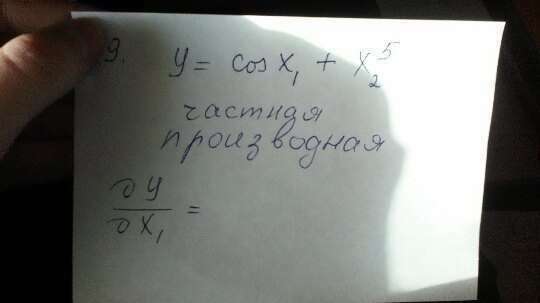 9. y = cos x₁ + x₂⁵
частная
производная
∂y/∂x₁ =